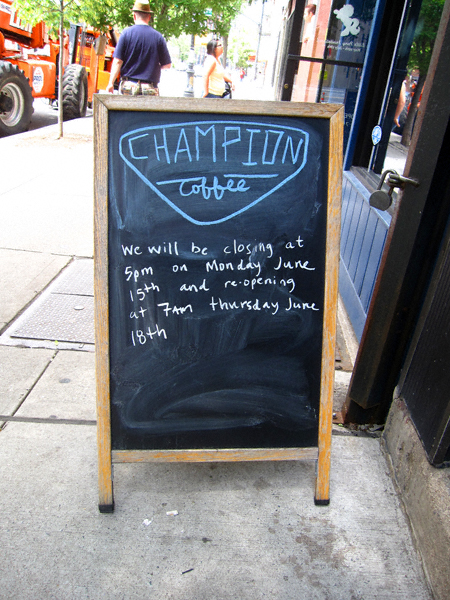 CHAMPION
coffee
We will be closing at
5pm on Monday June
15th and re-opening
at 7AM thursday June
18th